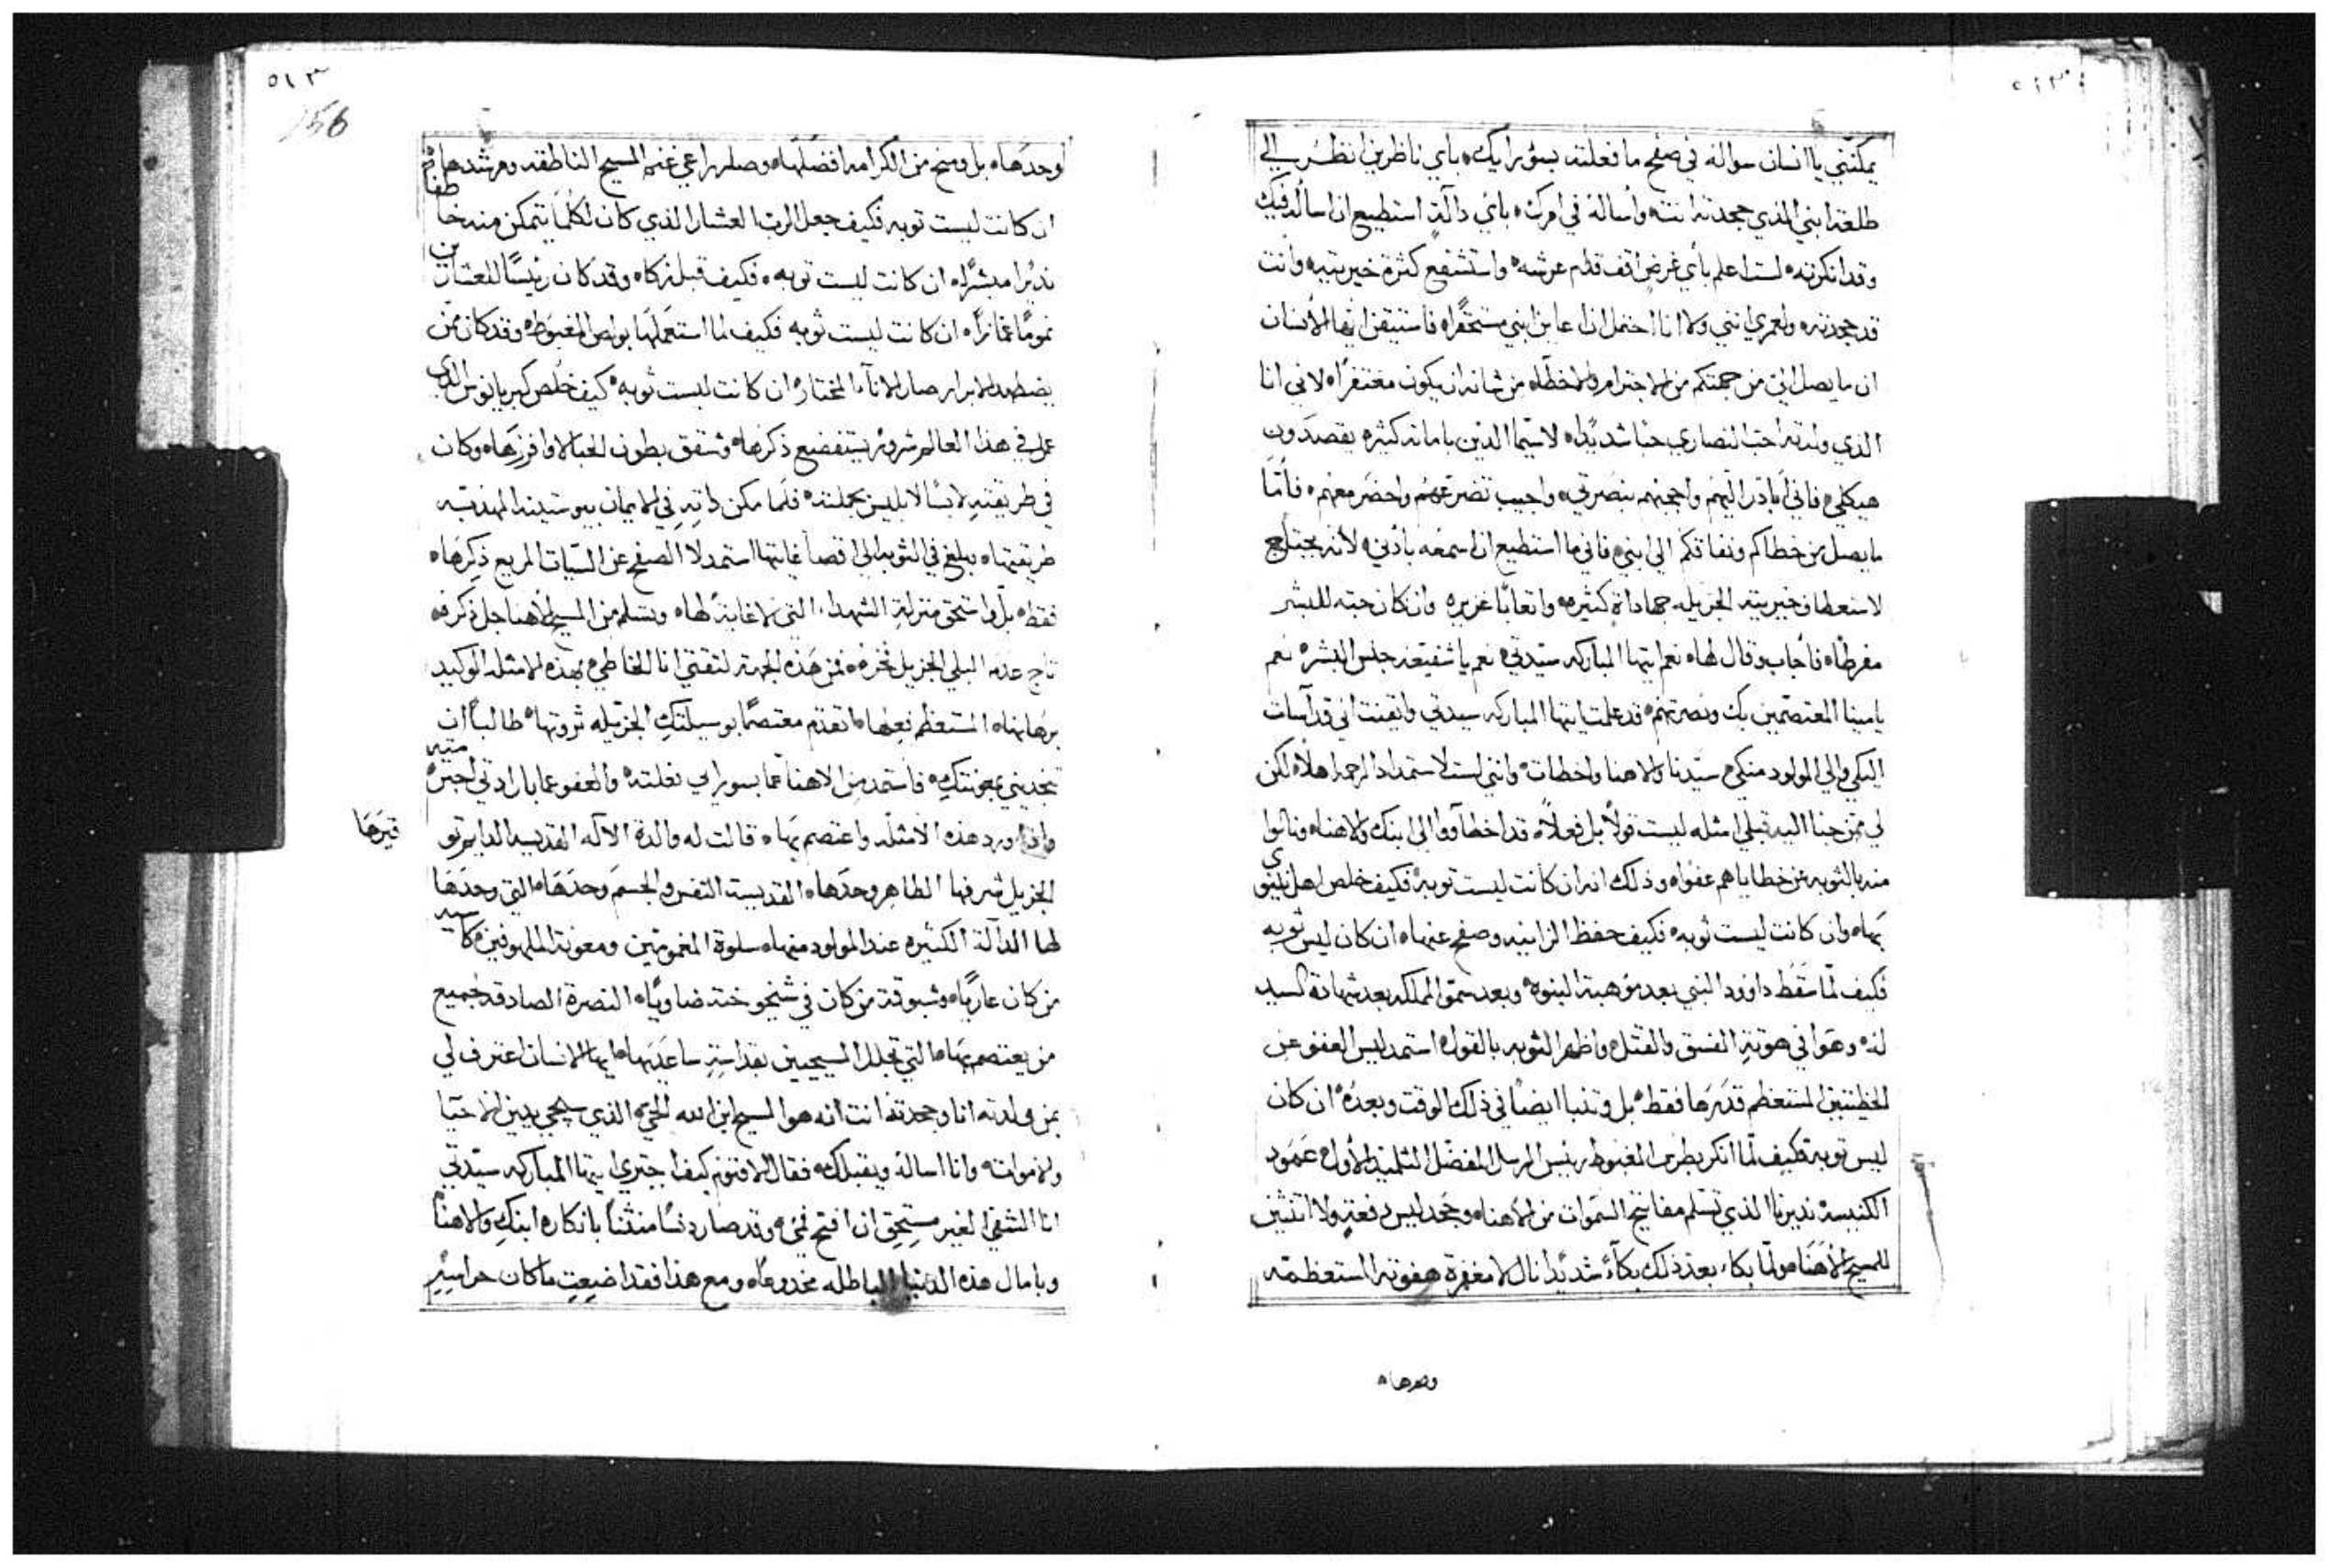 يمكنني يا انسان سواله في صفح ما فعلته بسؤ رايك، باي ناظرين انظر الي
طلعة ابني الذي جحدته انت، وأساله في امرك، بايّ دالةٍ استطيع ان اساله فيك
وقد انكرته، لست اعلم باي غرضٍ اقف قدام عرشه، واستشفع كثرة خيريته، وانت
قد جحدته، ولعمري انني ولا انا احتمل ان اعاين ابني مستحقراً، فاستيقن ايها الانسان
ان ما يصل اليّ من جهتكم من الاجترام والاخطا، من شانه ان يكون مغتفراً، لاني انا
الذي ولدته احب النصاري حبا شديداً، لا سيما الذين بامانه كثيره يقصدون
هيكلي، فاني ابادر اليهم وانجحهم بنصرتي، واجيب تضرعهم واحضر معهم، فأمّا
ما يصل من خطاكم ونفاقكم الي ابني، فاني ما استطيع ان اسمعه باذني، لانه يحتاج
لاستعطاف خيريته الجزيله جهاداة كثيره، واتعابًا غزيره، وان كان حبه للبشر
مفرطا، فأجاب وقال لها، نعم ايتها المباركه سيدتي، نعم يا شفيعة جنس البشر، نعم
يا مينا المعتصمين بك ونصرتهم، قد علمت ايتها المباركه سيدتي وايقنت اني قد أسات
اليكي والي المولود منكي سيدنا والاهنا واخطات، وانني لست لاستمداد الرحمه اهلاً، لكن
لي ممن جنا اليه قبلي امثله ليست قولاً بل فعلاً، قد اخطأوا الي ابنك والاهنا، ونالوا
منه بالتوبه عن خطاياهم عفوا، وذلك انه ان كانت ليست توبه، فكيف خلص اهل نينوي
بها، وان كانت ليست توبه، فكيف حفظ الزانيه وصفح عنها، ان كان ليس توبه
فكيف لمّا سقط داوود النبي بعد موهبة النبوه، وبعد سمو المملكه، بعد شهادة السيد
له، وهوا في هوتة الفسق والقتل، واظهر التوبه بالقول، استمد ليس العفو عن
الخطيتين المستعظم قدرها فقط، بل وتنبا ايضًا في ذلك الوقت وبعده، ان كان
ليس توبة، فكيف لمّا انكر بطرس المغبوط رئيس الرسل المفضل التلميذ الاول، عمود
الكنيسة نذيرنا الذي تسلم مفاتيح السموات من الاهنا، وجحد ليس دفعةٍ ولا اثنتين
للمسيح الاهنا، ولمّا بكاء بعد ذلك بكآءً شديدًا نال لا مغفرة هفوته المستعظمه
وحدها
٥١٣
156
وحدها، بل ومنح من الكرامه افضلها، وصار راعي غنم المسيح الناطقه ومرشدها
ان كانت ليست توبه فكيف جعل الرب العشار الذي كان لكلما يتمكن منه خاطفا
نذيرًا مبشرًا، ان كانت ليست توبه، فكيف قبل زكا، وقد كان رئيسًا للعشارين
نمومًا غمازًا، ان كانت ليست توبه فكيف لما استعملها بولص المغبوط، وقد كان ممن
يضطهد الابرار صار الانآء المختار، ان كانت ليست توبه، كيف خلص كبريانوس الذي
عمل في هذا العالم شرور يستفضع ذكرها، وشقق بطون الحبالا وافرزها، وكان
في طريقته لابسًا لابليس بجملته، فلمّا مكن ذاته في الايمان بيوستينه المهذبه
طريقتها، وبلغ في التوبه الي اقصا غايتها استمد لا الصفح عن السيات المريع ذكرها،
فقط، بل واستحق منزلة الشهدا، التي لا غاية لها، وتسلم من المسيح الاهنا جل ذكره
تاج عدم البلي الجزيل فخره، فمن هذه الجهه لثقتي انا الخاطي بهذه الامثله الوكيد
برهانها، المستعظم نفعها، اتقدم معتصمًا بوسيلتك الجزيله ثروتها، طالبًا ان
تنجديني بمعونتك، فأستمد من الاهنا عما بسوء رايي فعلته، والعفو عما بارادتي اجترمته
واذ اورد هذه الامثله واعتصم بها، قالت له والدة الاله القديسه الدايم توقيرها
الجزيل شرفها الطاهر وحدها، القديسة النفس والجسم وحدها، التي وحدها
لها الدآلة الكثيره عند المولود منها، سلوة المغمومين ومعونة الملهوفين، كاسيه
من كان عاريًا، وشبوقة من كان في شيخوخته ضاويًا، النصرة الصادقه لجميع
من يعتصم بها، التي تجلل المسيحيين بقداسة ساعديها، ايها الانسان اعترف لي
بمن ولدته انا وجحدته انت انه هو المسيح ابن الله الحي، الذي سيجي يدين الاحيا
والاموات، وانا اساله ويقبلك، فقال الاقنوم كيف اجتري ايتها المباركه سيدتي
انا الشقي الغير مستحق ان افتح فمي، وقد صار دنسًا منتنًا بانكاره ابنك والاهنا
وبامال هذه الدنيا الباطله مخدوعًا، ومع هذا فقد اضيعت ما كان حراستهِ